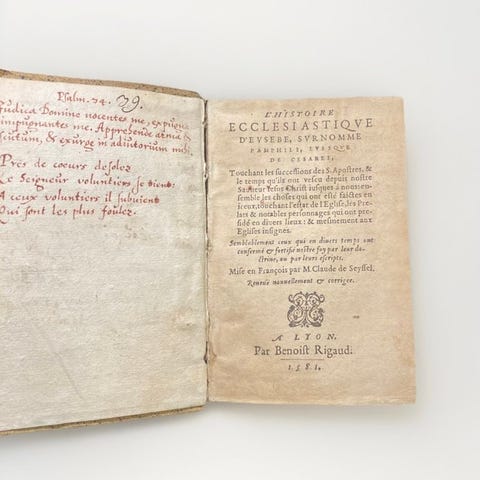 Psalm. 34. 39.
Judica Domine nocentes me, expugna
impugnantes me. Apprehende arma &
scutum, & exurge in adiutorium mihi.
Prés de coeurs desolez
Le Seigneur voluntiers se tient:
A ceux voluntiers il subuient
Qui sont les plus foulez.
L'HISTOIRE
ECCLESIASTIQVE
D'EVSEBE, SVRNOMME
PAMPHILE, EVESQVE
DE CESAREE,
Touchant les successions des S. Apostres, &
le temps qu'ils ont vescu depuis nostre
Sauueur Iesus Christ iusques à nous: en-
semble les choses qui ont esté faictes en
iceux, touchant l'estat de l'Eglise, les Pre-
lats & notables personnages qui ont pre-
sidé en diuers lieux: & mesmement aux
Eglises insignes.
Semblablement ceux qui en diuers temps ont
confermé & fortifié nostre foy par leur do-
ctrine, ou par leurs escripts.
Mise en François par M. Claude de Seyssel.
Reueuë nouuellement & corrigee.
A LYON,
Par Benoist Rigaud.
1581.